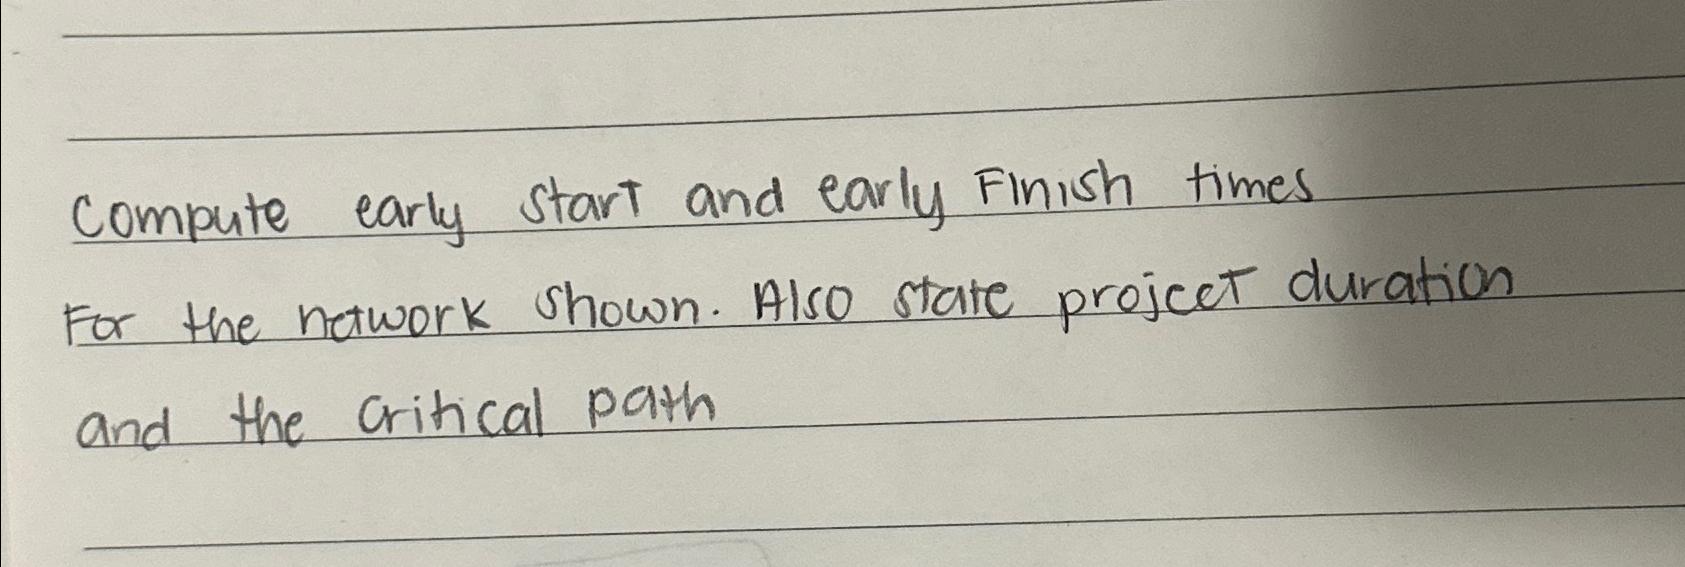 Compute early start and early Finish times
For the network shown. Also state project duration
and the critical path